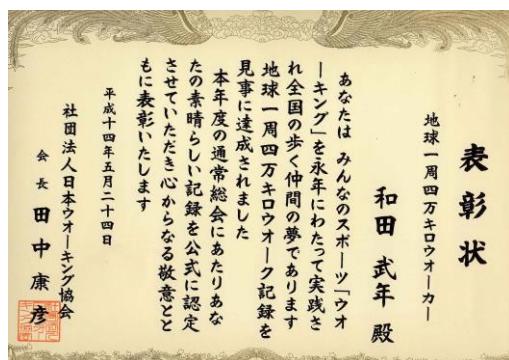 表彰状
地球一周四万キロウオーカー
和田武年殿
あなたは みんなのスポーツ「ウオ
ーキング」を永年にわたって実践さ
れ全国の歩く仲間の夢であります
地球一周四万キロウオーク記録を
見事に達成されました
本年度の通常総会にあたりあな
たの素晴らしい記録を公式に認定
させていただき心からなる敬意とと
もに表彰いたします
平成十四年五月二十四日
社団法人日本ウオーキング協会
会長 田中康彦